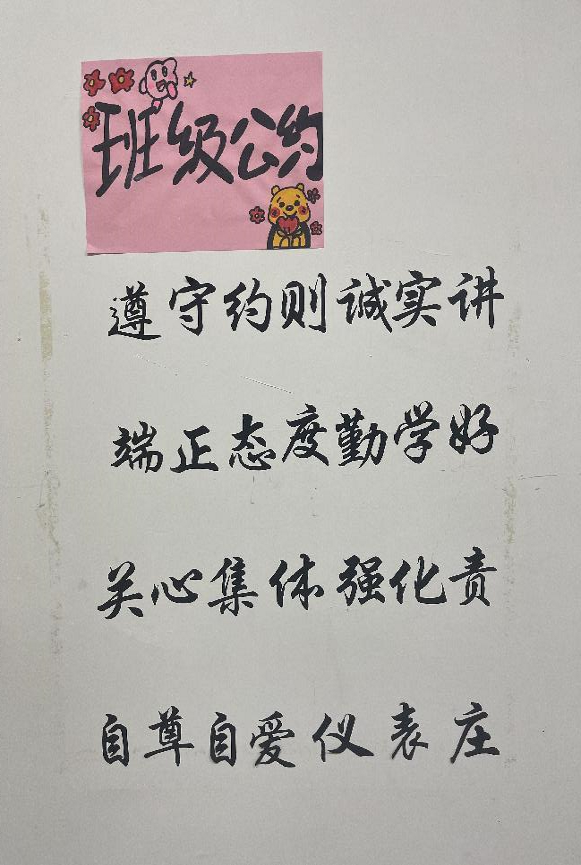 班级公约
遵守约则诚实讲
端正态度勤学好
关心集体强化责
自尊自爱仪表庄